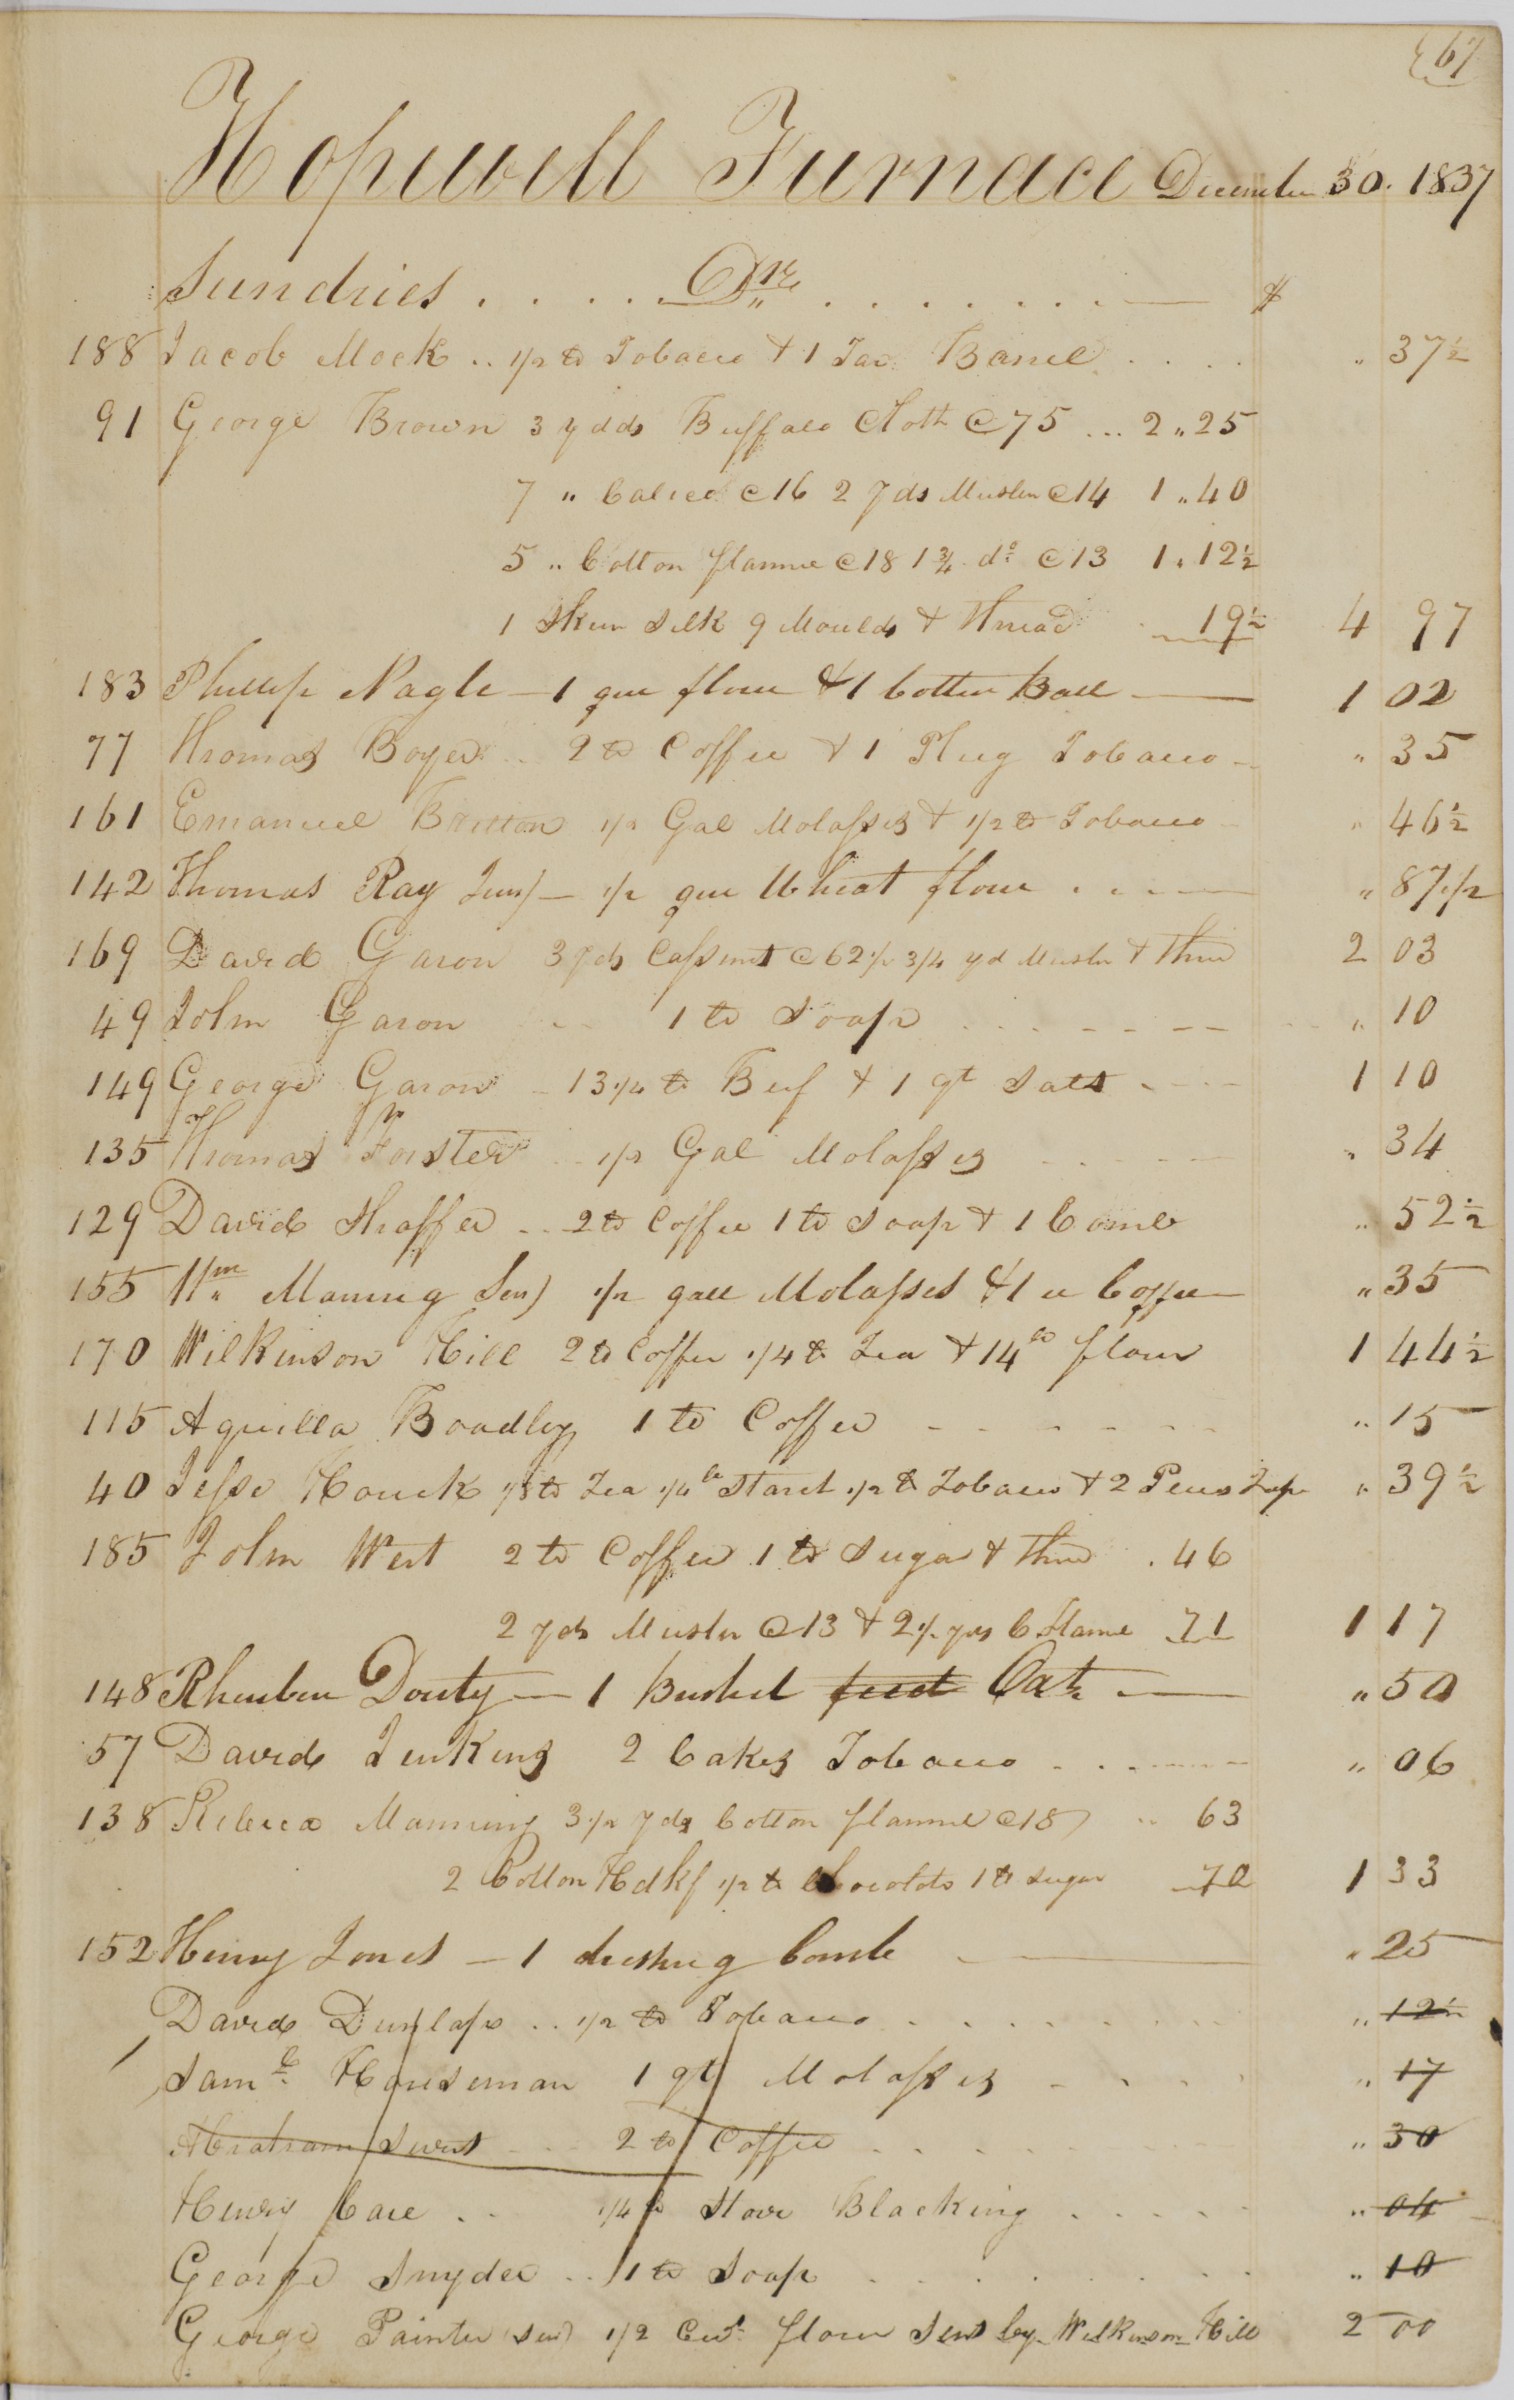 67
Hopewell Furnace December 30. 1837
Sundries . . . . . Drs . . . . . . . — $
188 Jacob Mock .. 1/2 lb Tobacco & 1 Tar Barrel . . . . " 37 1/2
91 George Brown 3 ydds Buffalo Cloth @ 75 ... 2 " 25
7 " Calico @ 16 2 yds Muslin @ 14 1 " 40
5 " Cotton flannel @ 18 1 3/4 do @ 13 1 " 12 1/2
1 Skein Silk 9 Moulds & Thread 19 1/2 4 97
183 Phillip Nagle — 1 qur flour & 1 Cotton Ball — 1 02
77 Thomas Boyer .. 2 lb Coffee & 1 Plug Tobacco — " 35
161 Emanuel Britton 1/2 Gal Molasses & 1/2 lb Tobacco " 46 1/2
142 Thomas Ray Junr — 1/2 qur Wheat flour . . . — " 87 1/2
169 David Garon 3 yds Cassinet @ 62 1/2 3/4 yd Muslin & Thrd 2 03
49 John Garon .. 1 lb Soap . . . . . . . " 10
149 George Garon — 13 1/4 lb Beef & 1 qt Salt . . . . 1 10
135 Thomas Forster .. 1/2 Gal Molasses . . . . " 34
129 David Shaffer .. 2 lb Coffee 1 lb Soap & 1 Comb " 52 1/2
155 Wm Maning Senr 1/2 gall Molasses & 1 lb Coffee — " 35
170 Wilkinson Hill 2 lb Coffee 1/4 lb Tea & 14 lb flour 1 44 1/2
115 Aquilla Boadley 1 lb Coffee . . . . . " 15
40 Jesse Houck 1/8 lb Tea 1/4 lb Starch 1/2 lb Tobacco & 2 " 39 1/2
185 John West 2 lb Coffee 1 lb Sugar & Thrd . 46
2 yds Muslin @ 13 & 2 1/2 yds C Flannel 71 1 17
148 Rheuben Douty — 1 Bushel feed Oats — " 50
57 David Jenkins 2 Cakes Tobacco . . . . . " 06
138 Rebecca Manning 3 1/2 yds Cotton flannel @ 18 .. 63
2 Cotton Hdkf 1/2 lb Chocolate 1 lb Sugar 70 1 33
152 Henry Jones — 1 dressing Comb — " 25
David Dunlap .. 1/2 lb Tobacco . . . . . . " 12 1/2
Saml Houseman 1 qt Molasses . . . . " 17
Abraham Swert .. 2 lb Coffee . . . . . " 30
Henry Care .. 1/4 lb Stove Blacking . . . . . " 04
George Snyder .. 1 lb Soap . . . . . . . " 10
George Painter Senr 1/2 Cwt flour Sent by Wilkinson Hill 2 00